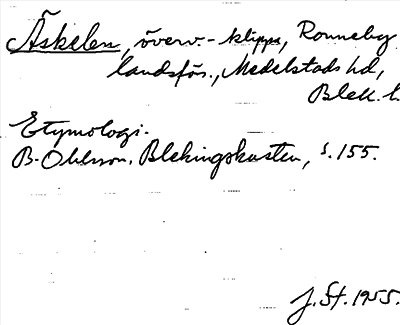 Äskelen, överv.- klippa, Ronneby
landsförs., Medelstads hd,
Blek. l.
Etymologi.
B. Ohlsson, Blekingskusten, s. 155.
J. St. 1955.